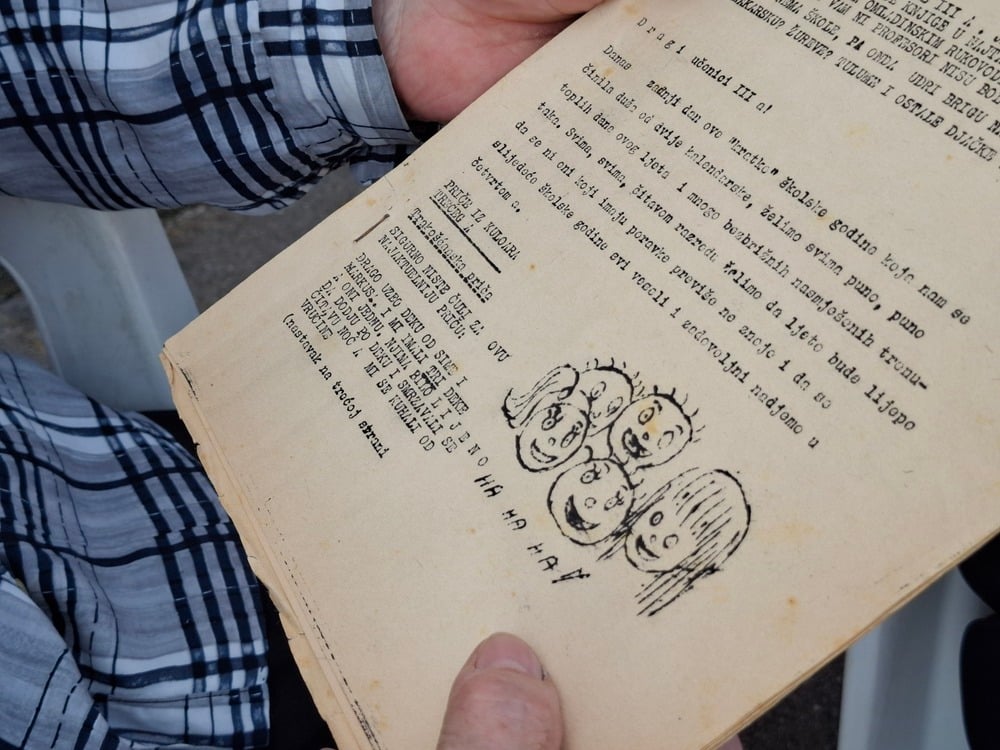 E III A.
KNJIGE U
OMLADINSKIM
VAM NI PROFESORI NISU
ŠKOLE, PA ONDA UDRI BRIGU
TULUME I OSTALE DJAČKE
Dragi učenici III a!
Danas zadnji dan ove "kratke" školske godine koja nam se
činila duža od dvije kalendarske, želimo svima puno, puno
toplih dana ovog ljeta i mnogo bezbrižnih nasmješenih trenu-
taka. Svima, svima, čitavom razredu želimo da ljeto bude lijepo
da se ni oni koji imaju popravke previše ne znoje i da se
slijedeće školske godine svi veseli i zadovoljni nadjemo u
četvrtom a.
PRIČE IZ KULOARA
TREĆEG A
Trakošćanska priča
SIGURNO NISTE ČULI ZA OVU
NAJAKTUELNIJU PRIČU:
DRAGO UZEO DEKU OD I
MARKUS. I MI IMALI TRI DEKE
A ONI JEDNU, NJIMA BILO LIJENO
DA DODJU PO DEKU I SMRZAVALI SE
ČITAVU NOĆ A MI SE KUHALI OD
VRUĆINE
(nastavak na trećoj strani
HA HA HA!